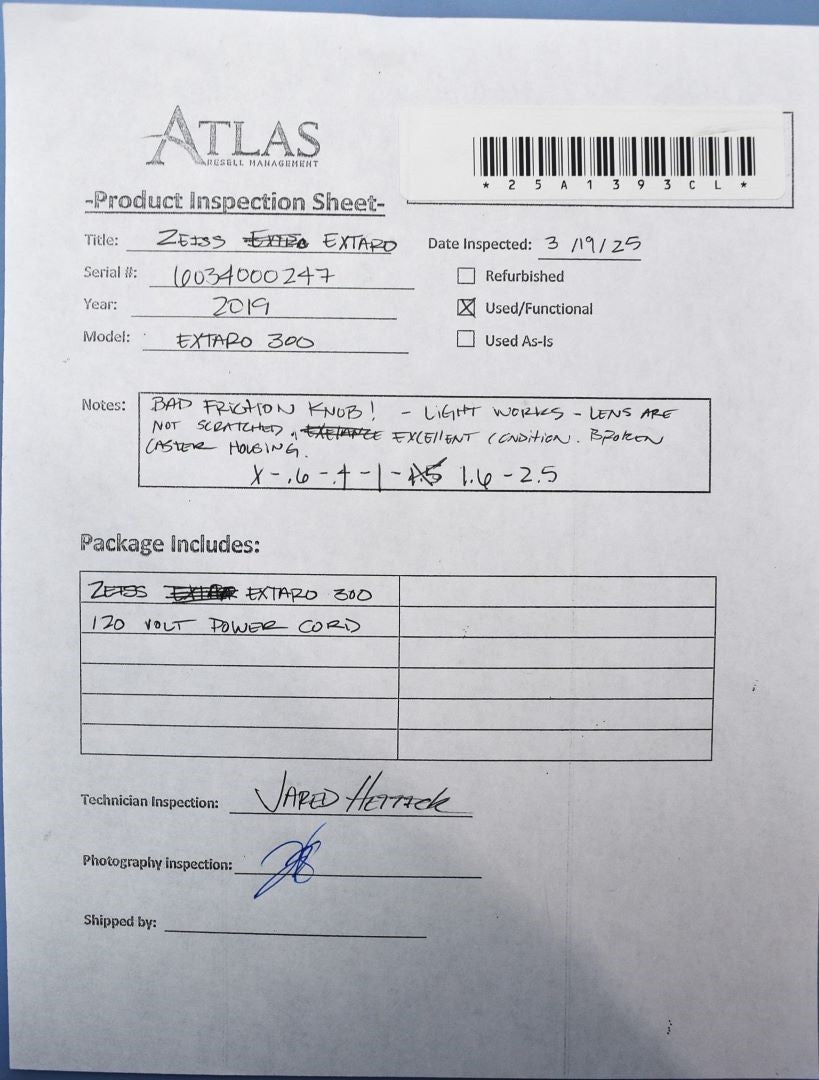 ATLAS
RESELL MANAGEMENT
*25A1393CL*
-Product Inspection Sheet-
Title: ZEISS EXTARO
Date Inspected: 3/19/25
Serial #: 6034000247
Refurbished
Year: 2019
Used/Functional
Model: EXTARO 300
Used As-Is
Notes: BAD FRICTION KNOB! - LIGHT WORKS - LENS ARE
NOT SCRATCHED, EXCELLENT CONDITION. BROKEN
CASTER HOUSING.
X - .6 - .4 - 1 - 1.6 - 2.5
Package Includes:
ZEISS EXTARO 300
120 VOLT POWER CORD
Technician Inspection: JARED
Photography Inspection:
Shipped by: